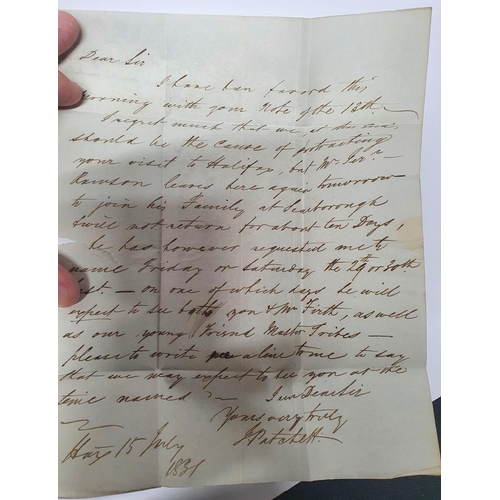 Dear Sir
I have been favord this
morning with your Note of the 13th.
I regret much that we at this
should be the cause of protracting
your visit to Halifax, but Mr
Rawson leaves here again tomorrow
to join his Family at Scarborough
& will not return for about ten Days,
he has however requested me to
name Friday or Saturday the 29 or 30th
Inst. — on one of which days he will
expect to see both you & Mr Firth, as well
as our young Friend Master Tribes —
please to write me a line to me to say
that we may expect to see you at the
time named — I am Dear Sir
Yours very truly
J Patchett.
Hax 15 July
1831